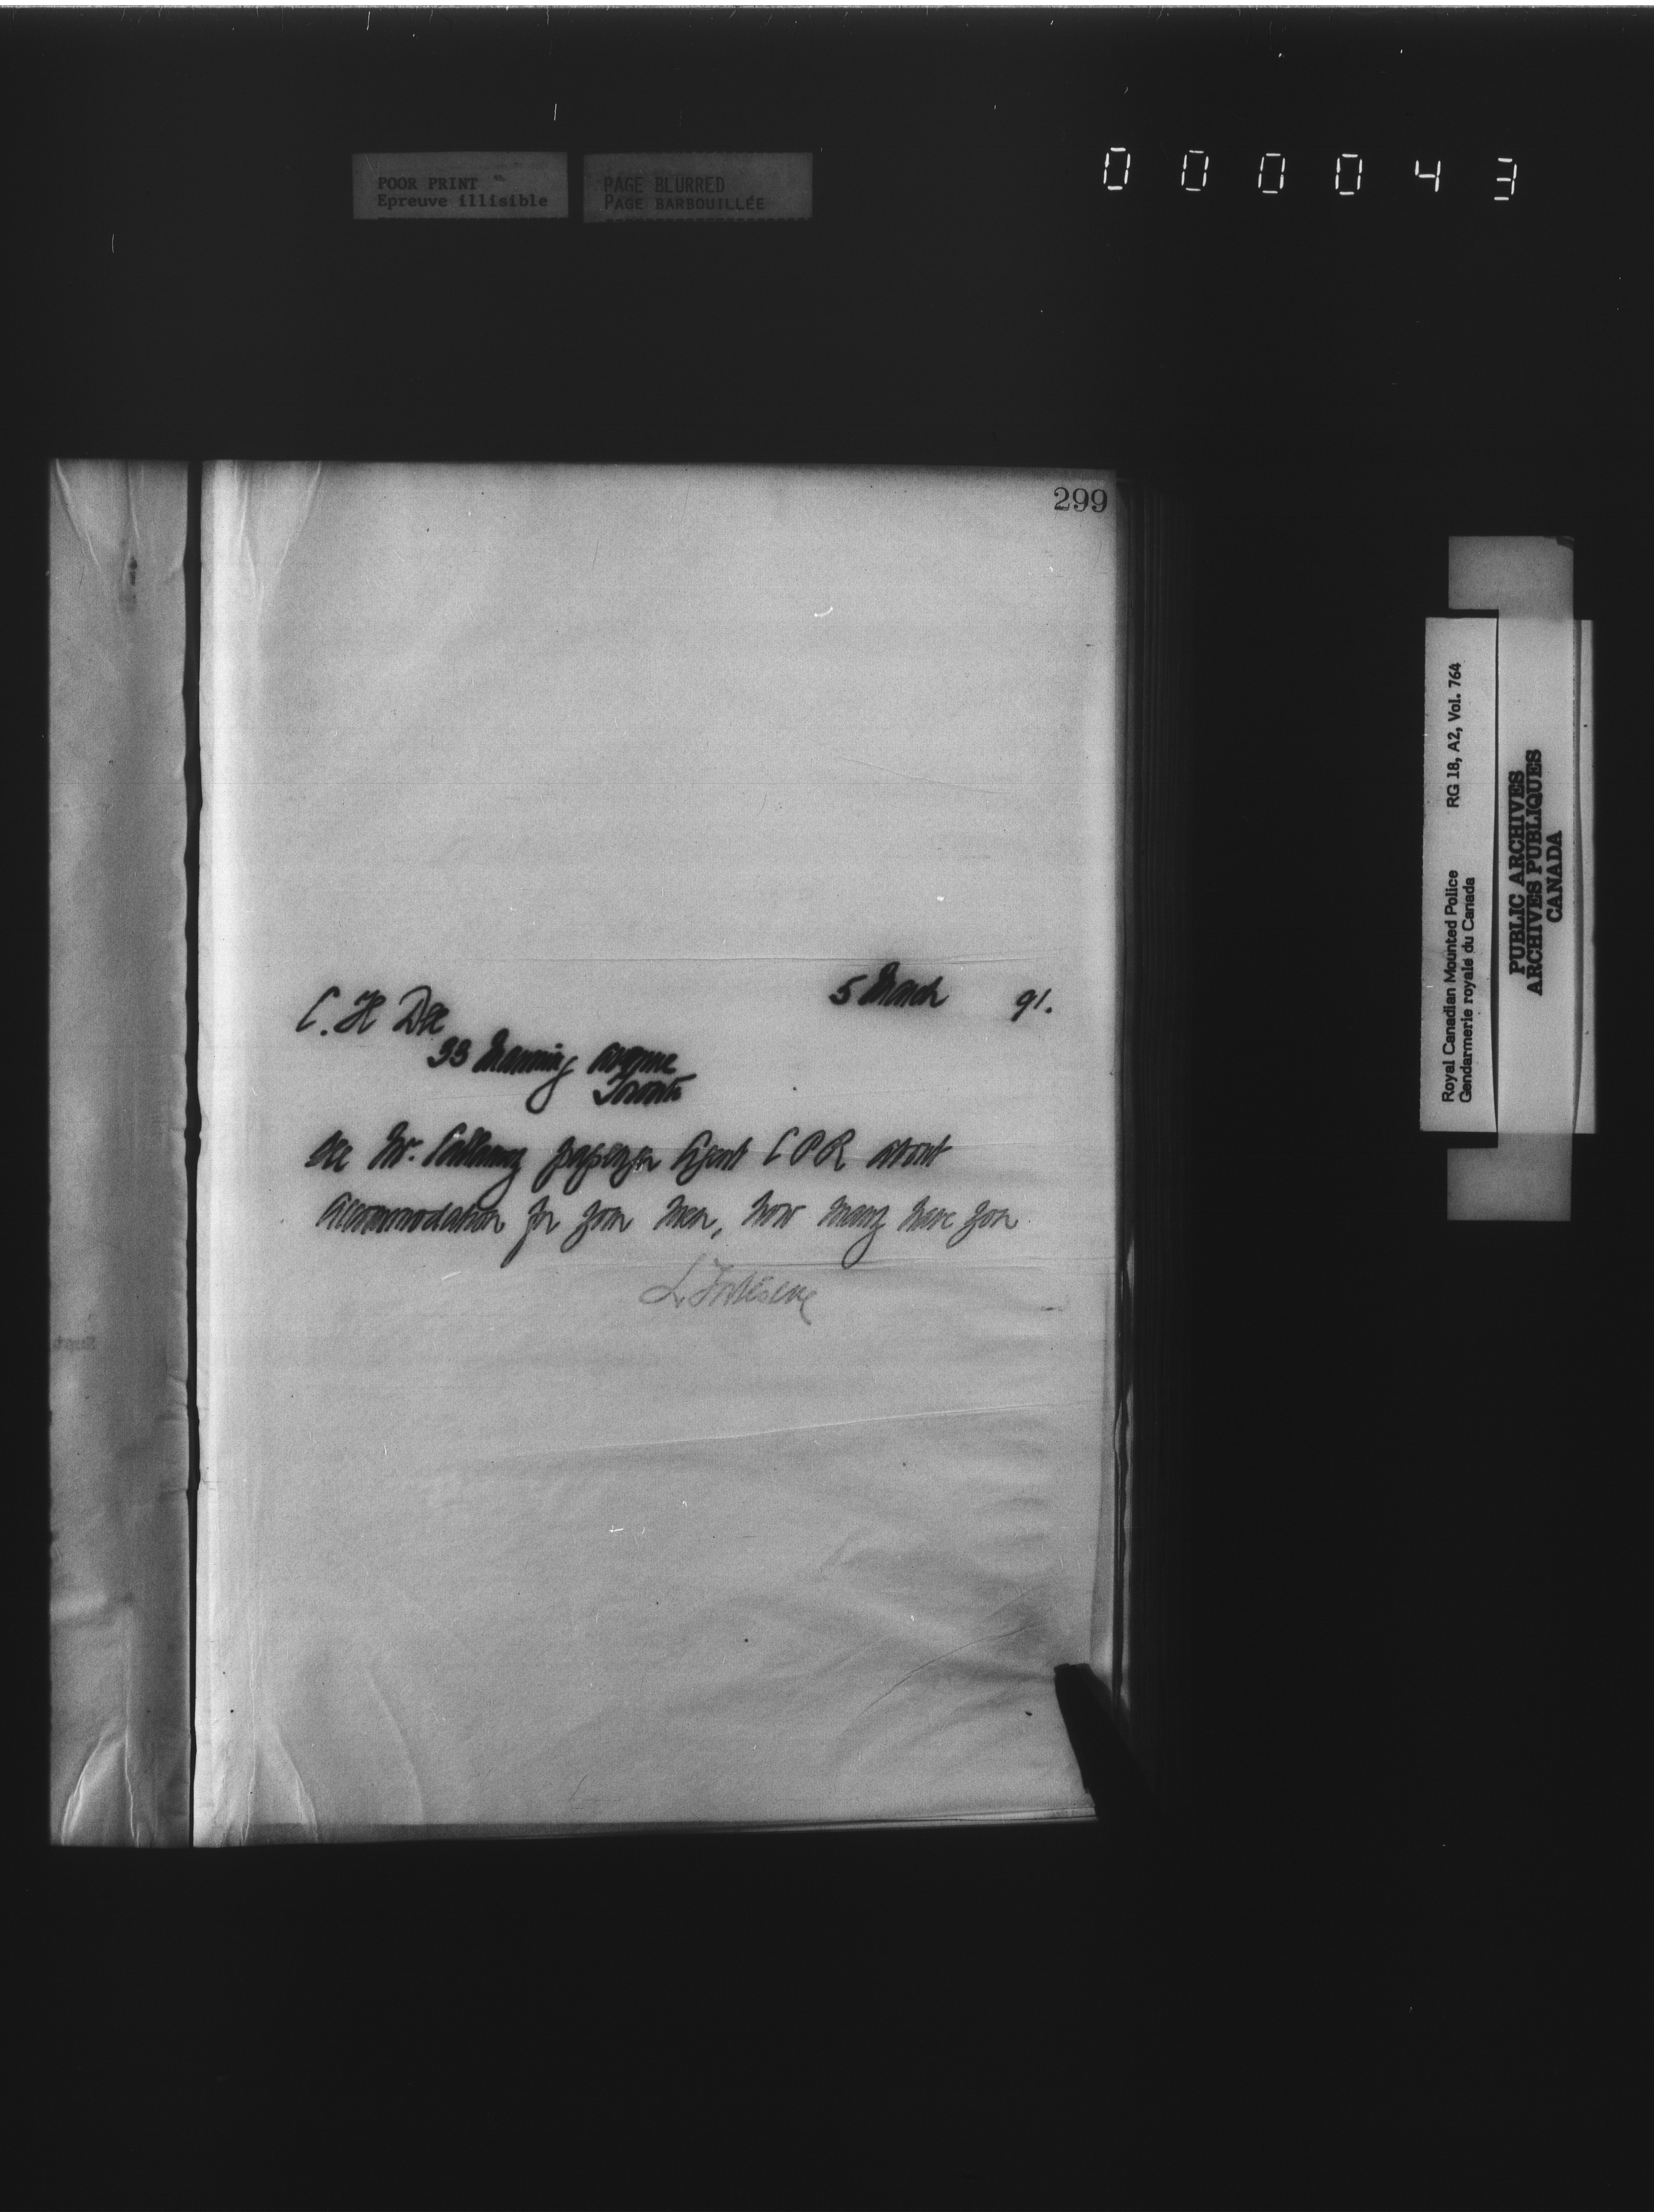 POOR PRINT
Epreuve illisible
PAGE BLURRED
PAGE BARBOUILLÉE
000043
299
5 March 91.
C. H Dee
33 Manning avenue
Toronto
See Mr. Callaway passenger Agent C P R about
accommodation for your men, how many have you
L. Fortescue
Royal Canadian Mounted Police RG 18, A2, Vol. 764
Gendarmerie royale du Canada
PUBLIC ARCHIVES
ARCHIVES PUBLIQUES
CANADA